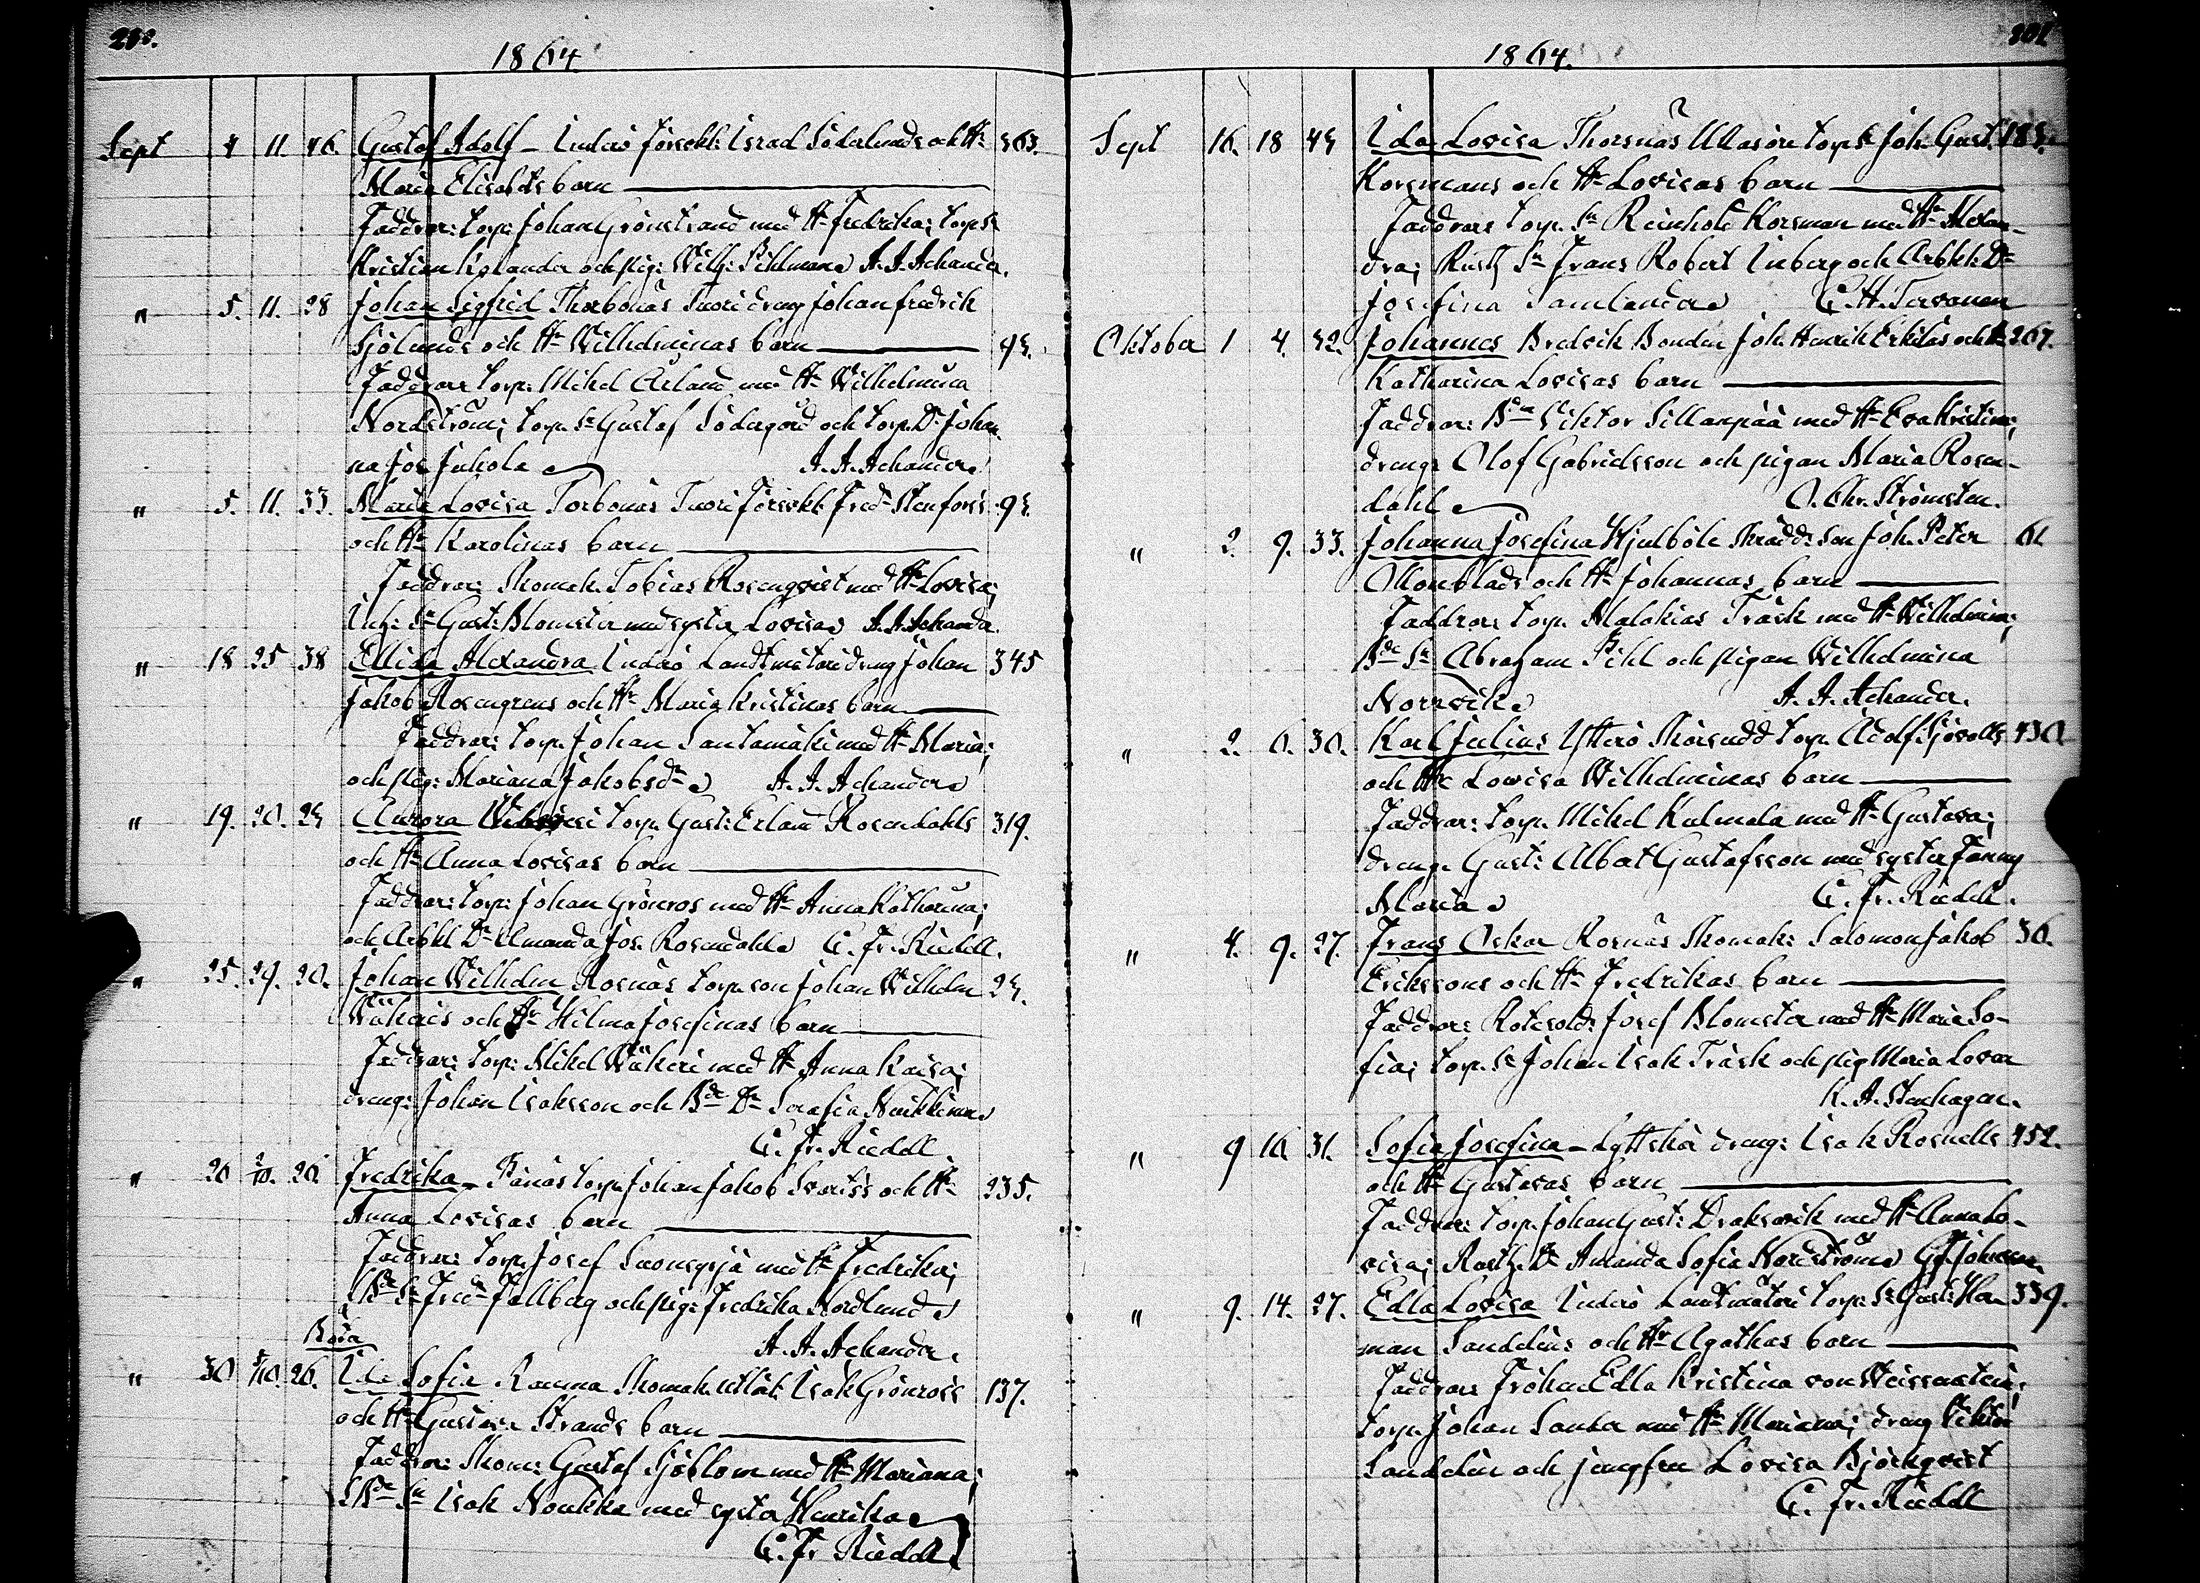 1864
Sept 4 11. 46. Gustaf Adolf – Inderö Försvkl: Israel Söderlunds och Hu 363.
Maria Elisabets barn
Faddrar: torp: Johan Grönstrand med Hu Fredrika; torp Sn
Kristian och pig: Wilh: Pihlman A. A. Achander.
" 5. 11. 28 Johan Sigfrid Thorbonäs Tuori dreng Johan Fredrik
Sjölunds och Hu Wilhelminas barn 93.
Faddrar torp: Mikel Åkland med Hu Wilhelmina
Nordström; torp. Sn Gustaf Södergård och torp. Dr Johan-
na Jos Juhola A. A. Achander
" 5. 11. 33. Maria Lovisa Torbonäs Tuori Försvkl: Fred: Stenfors: 93.
och Hu Karolinas barn
Faddrar: Skomak. Tobias Rosenqvist med Hu Lovisa;
Sn Gust: Blomster med syster Lovisa A. A. Achander.
" 18 25 38 Ellida Alexandra Inderö Landtmäteri dreng Johan 345
Jakob Rosengrens och Hu Maria Kristinas barn
Faddrar: torp. Johan Santamäki med Hu Maria;
och pig: Mariana Jakobsdr A. A. Achander
" 19. 20. 23 Aurora torp. Gust: Erland Rosendahls 319.
och Hu Anna Lovisas barn
Faddrar: torp: Johan Grönros med Hu Anna Katharina;
och Arbkl Dr Amanda Jos. Rosendahl C. Fr. Riedell.
" 25. 29. 20. Johan Wilhelm Rosnäs torp. son Johan Wilhelm 23.
och Hu Hilma Josefinas barn
Faddrar: torp: Mikel med Hu Anna Kaisa;
dreng: Johan Isaksson och Bde Dr Serafia Heikkinen
C. Fr. Riedell
" 26 2/10. 26. Fredrika – torp. Johan Jakob och Hu 235.
Anna Lovisas barn
Faddrar: torp. Josef med Hu Fredrika;
Bde Sn Fred: Fallberg och pig: Fredrika Nordlund
A. A. Achander.
Båda
" 30 5/10. 26. Ida Sofia Rauma Skomak. utlär: Isak Grönroos 137.
och Hu Gustava Strands barn
Faddrar: Skom: Gustaf Sjöblom med Hu Mariana;
Bde Sn Isak Noukka med syster Henrika
C. Fr Riedell
1864.
Sept 16. 18 43 Ida Lovisa Thorsnäs Ulasöre torp Sn Joh. Gust: 183.
Korsmans och Hu Lovisas barn
Faddrar: torp. Sn Reinhold Korsman med Hu Alexan-
dra; Rusth Sn Frans Robert Inberg och Arbkl: Dr
Josefina Samlander C. H. Tersonen
Oktober 1 4. 32. Johannes Bredvik Bonden Joh. Henrik Erkiläs och Hu 267.
Katharina Lovisas barn
Faddrar: Bdn Viktor Sillanpää med Hu Eva Kristina;
dreng: Olof Gabrielsson och pigan Maria Rosen-
dahl O. Chr. Strömsten.
" 2. 9. 33. Johanna Josefina Hjulböle Skrädd: son Joh. Peter 61.
Ollonblads och Hu Johannas barn
Faddrar: torp. Malakias Träsk med Hu Wilhelmina;
Bde Sn Abraham Pihl och pigan Wilhelmina
Norrvik A. A. Achander.
" 2. 6. 30. Karl Julius Ytterö Skärsudd torp. Adolf Sjövalls 430.
och Hu Lovisa Wilhelminas barn
Faddrar: torp. Mikel Kulmala med Hu Gustava;
dreng. Gust: Albert Gustafsson med syster Fanny
Maria C. Fr. Riedell.
" 4. 9. 27. Frans Oskar Rosnäs Skomak: Salomon Jakob 36.
Erikssons och Hu Fredrikas barn
Faddrar: Rotesold: Josef Blomster med Hu Maria So-
fia; torp. Sn Johan Isak Träsk och pig Maria Lovar
K. A. Stenhagen.
" 9 10. 31. Sofia Josefina – Lyttskä dreng: Isak Rosnells 452.
och Hu Gustavas barn
Faddrar: torp. Johan Gust: Draksvik med Hu Anna Lo-
visa; Rusth. Dr Amanda Sofia Nordström
" 9. 14. 27. Edla Lovisa Inderö Landtmäteri torp. Sn Gust: Her- 339.
man Sandelins och Hu Agathas barn
Faddrar: Fröken Edla Kristina von Weissenstein;
torp. Johan Santa med Hu Mariana; dreng Viktor
Sandelin och jungfru Lovisa Björkqvist
C. Fr. Riedell